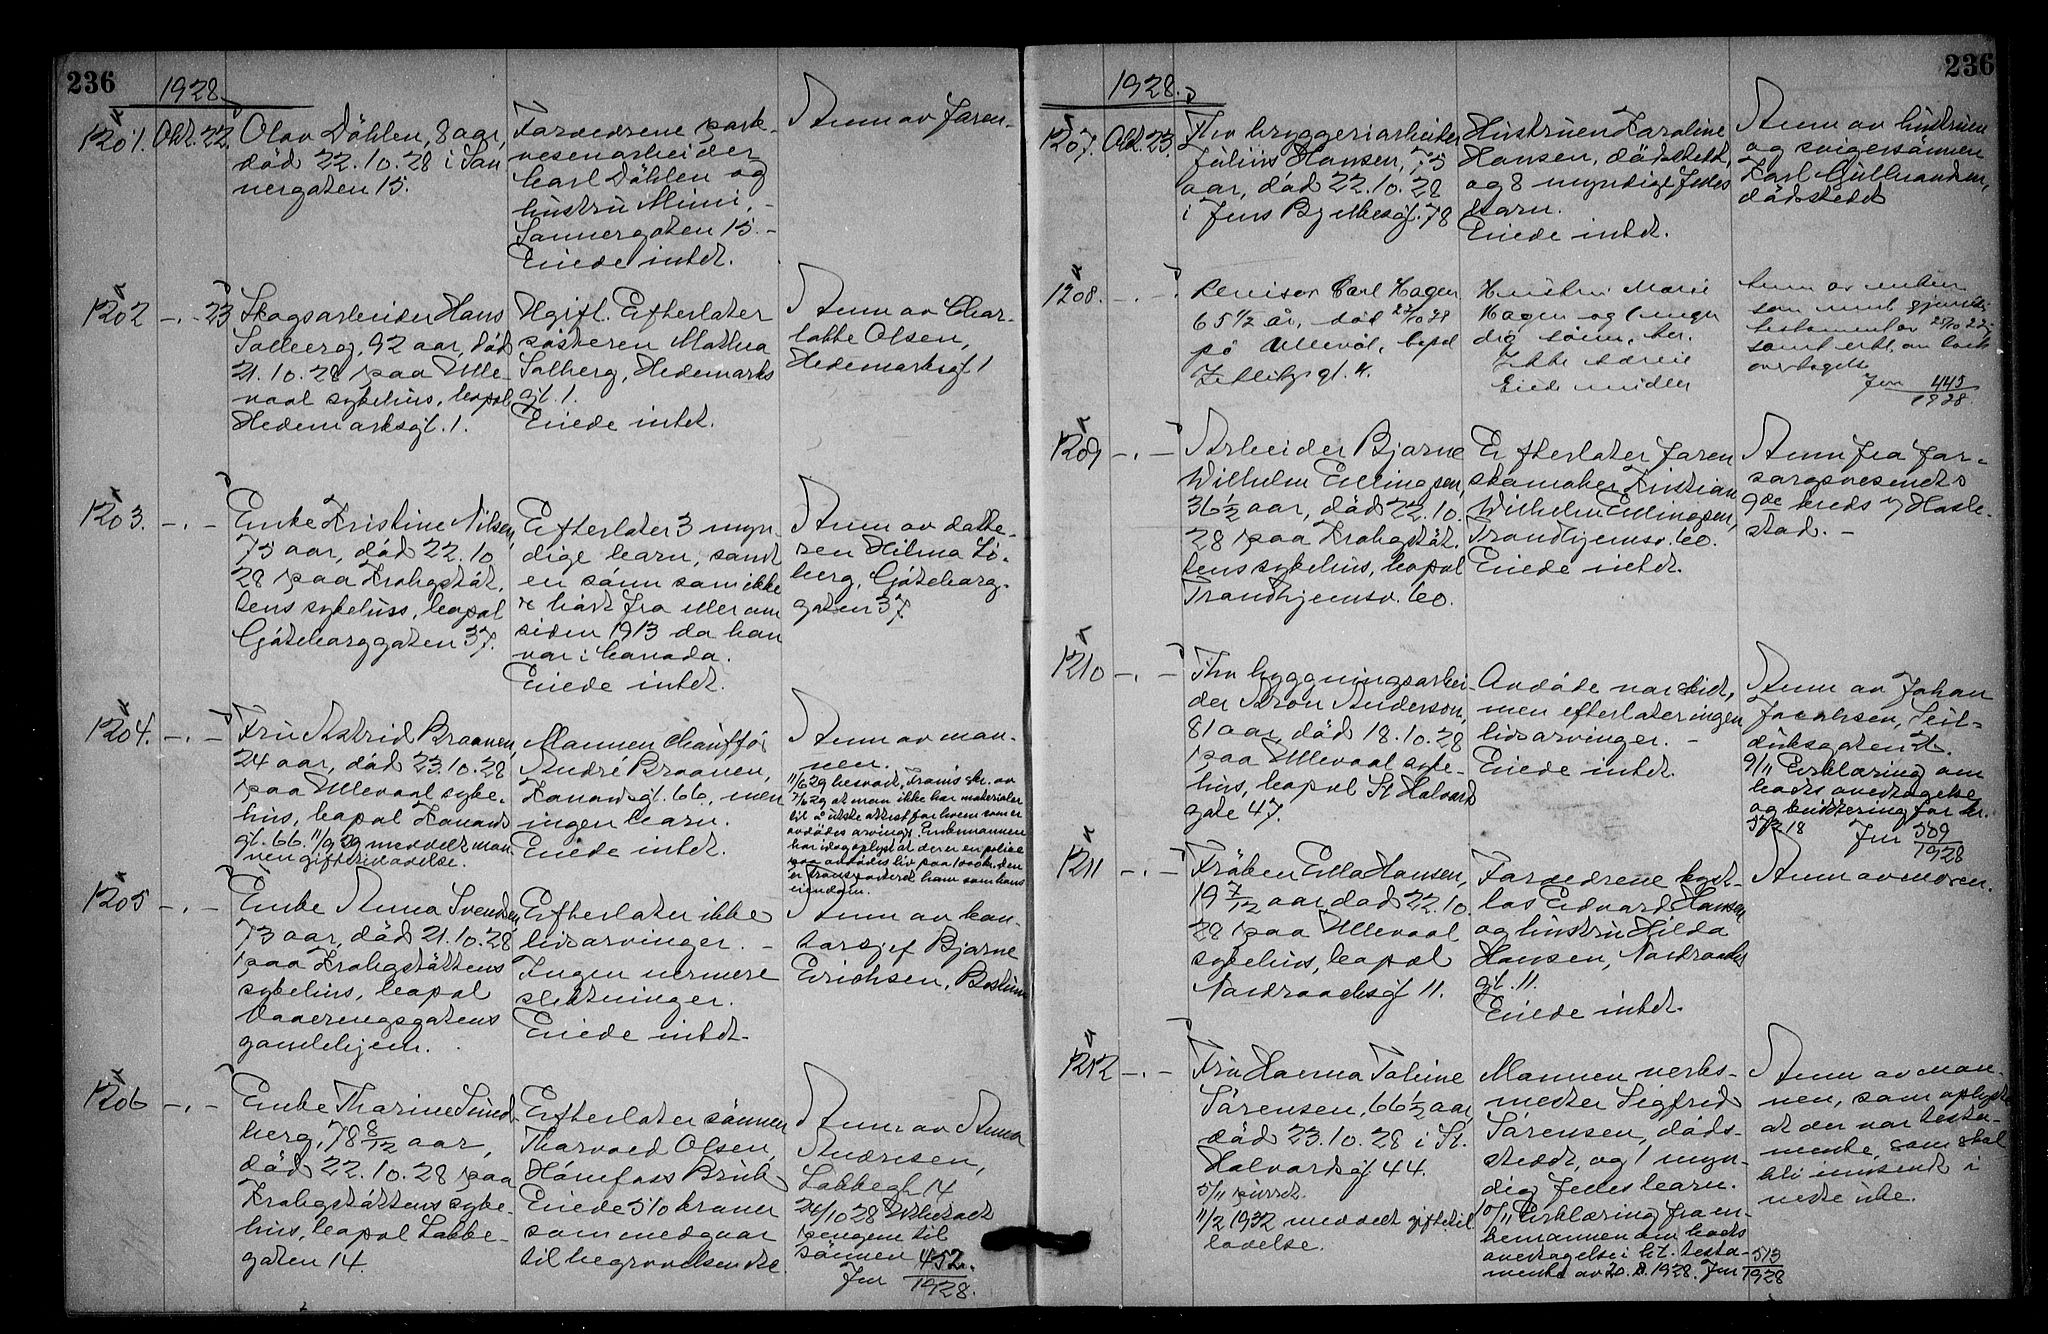 236
1928.
1201. Okt. 22.
Olav Döhlen, 8 aar,
död 22.10.28 i San
nergaten 15.
Forældrene park-
vesenarbeider
Carl Döhlen og
hustru Mimi,
Sannergaten 15.-
Eiede intet.
Anm av faren.
1202 -.- 23
Skogsarbeider Hans
Solberg, 92 aar, död
21.10.28 paa Ulle-
vaal sykehus, bopæl
Hedemarksgt. 1.
Ugift. Efterlater
søsteren Mathea
Solberg, Hedemarks
gt. 1.
Eiede intet.
Anm av Char-
lotte Olsen,
Hedemarksgt 1
1203. -.-
Enke Kristine Nilsen,
75 aar, död 22.10
28 paa Krohgstöt,
tens sykehus, bopæl
Göteborggaten 37.
Efterlater 3 myn-
dige barn, samt
en sönn som ikke
er hört fra eller om
siden 1913 da han
var i Canada.
Eiede intet.
Anm av datte-
ren Hilma Lö-
berg, Göteborg-
gaten 37
1204. -.-
Fru Astrid Braanen,
24 aar, död 23.10.28
paa Ullevaal syke-
hus, bopæl
gt. 66. 11/9 29 meddelt man
nen giftetilladelse.
Mannen chaufför
André Braanen,
gt. 66, men
ingen barn.
Eiede intet.
Anm av man-
nen.
11/6 29 besvart skr. av
7/6 29 at man ikke har materialer
til å utste attest for hvem som er
avdødes arvinger. Enkemannen
har idag oplyst at der er en polise
paa avdødes liv paa 1000 kr. den
er transportert ham som hans
eiendom.
1205 -.-
Enke Anna Svendsen,
73 aar, död 21.10.28
paa Krohgstöttens
sykehus, bopæl
Vaalerengsgatens
gamlehjem.
Efterlater ikke
livsarvinger. -
Ingen nermere
slektninger.
Eiede intet.
Anm av kon-
torsjef Bjarne
Erichsen,
1206 -.-
Enke Tharine Sund
berg, 78 8/12 aar,
död 22.10.28 paa
Krohgstöttens syke-
hus, bopæl Lakke-
gaten 14.
Efterlater sönnen
Tharvald Olsen,
Hönefoss Bruk
Eiede 510 kroner
som medgaar
til begravelsen etc.
Anm av Anna
Andresen,
Lakkegt. 14
26/10 28 Utbetalt
pengene til
sönnen
Jnr 452/1928.
236
1928.
1207. Okt. 23.
Fhv bryggeriarbeider
Julius Hansen, 75
aar, död 22.10.28
i Jens Bjelkesgt. 78
Hustruen Karoline
Hansen, dödstedet,
og 8 myndige felles
barn.
Eiede intet.
Anm av hustruen
og svigersönnen
Karl Gulbrandsen,
dödstedet
1208. -.-
Revisor Carl Hagen
65 1/2 år, död 22/10 28
på Ullevål, bopæl
Zetlitz gt. 4.
Hustru Marie
Hagen og 1 myn
dig sönn, her.
Ikke særeie
Eied midler
Anm av enken
som med gjensidig
testament av 25/10 22
samt erkl. om boets
overtagelse
Jnr 445/1928.
1209 -.-
Arbeider Bjarne
Wilhelm Ellingsen,
36 1/2 aar, död 22.10.
28 paa Krohgstöt
tens sykehus, bopæl
Trondhjemsv. 60.
Efterlater faren
skomaker Kristian
Wilhelm Ellingsen,
Trondhjemsv. 60.
Eiede intet.
Anm fra for-
sorgsvesenets
9de kreds v/ Hasle-
stad. -
1210 -.-
Fhv bygningsarbei-
der Aron Anderson,
81 aar, död 18.10.28
paa Ullevaal syke-
hus, bopæl St Halvards
gate 47.
Avdöde var skilt,
men efterlater ingen
livsarvinger. -
Eiede intet.
Anm av Johan
Jacobsen, Seil-
duksgaten
9/11 Erklæring om
boets overtagelse
og kvittering for kr.
Jnr 509/1928
1211 -.-
Fröken Ella Hansen,
19 7/12 aar, död 22.10.
28 paa Ullevaal
sykehus, bopæl
Nordraaksgt 11.
Forældrene
Edvard Hansen
og hustru Hilda
Hansen, Nordraaks
gt. 11.
Eiede intet.
Anm av moren.
1212 -.-
Fru Hanna Toline
Sörensen, 66 1/2 aar,
död 23.10.28 i St.
Halvardsgt 44.
5/11 purret.
11/2 1932 meddelt giftetil
ladelse.
Mannen verks-
mester Sigfred
Sörensen, döds-
stedet, og 1 myn-
dig felles barn.
10/11 Erklæring fra en-
kemannen om boets
overtagelse i h.t. testa-
mente av 20.8.1928. Jnr 513/1928
Anm av man-
nen, som oplyste
at der var testa-
mente, som skal
bli innsendt i
neste uke.